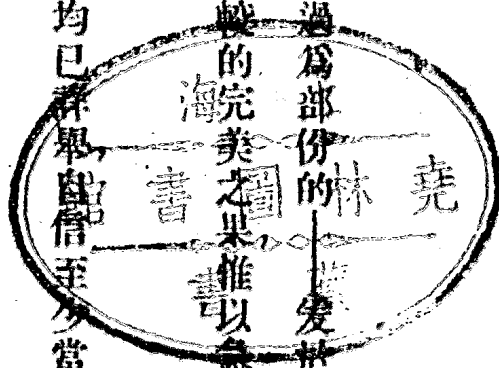 過爲部份的——爰於
較的完美之果惟以急
均已詳舉自信至少當
海
堯林圖書館
書